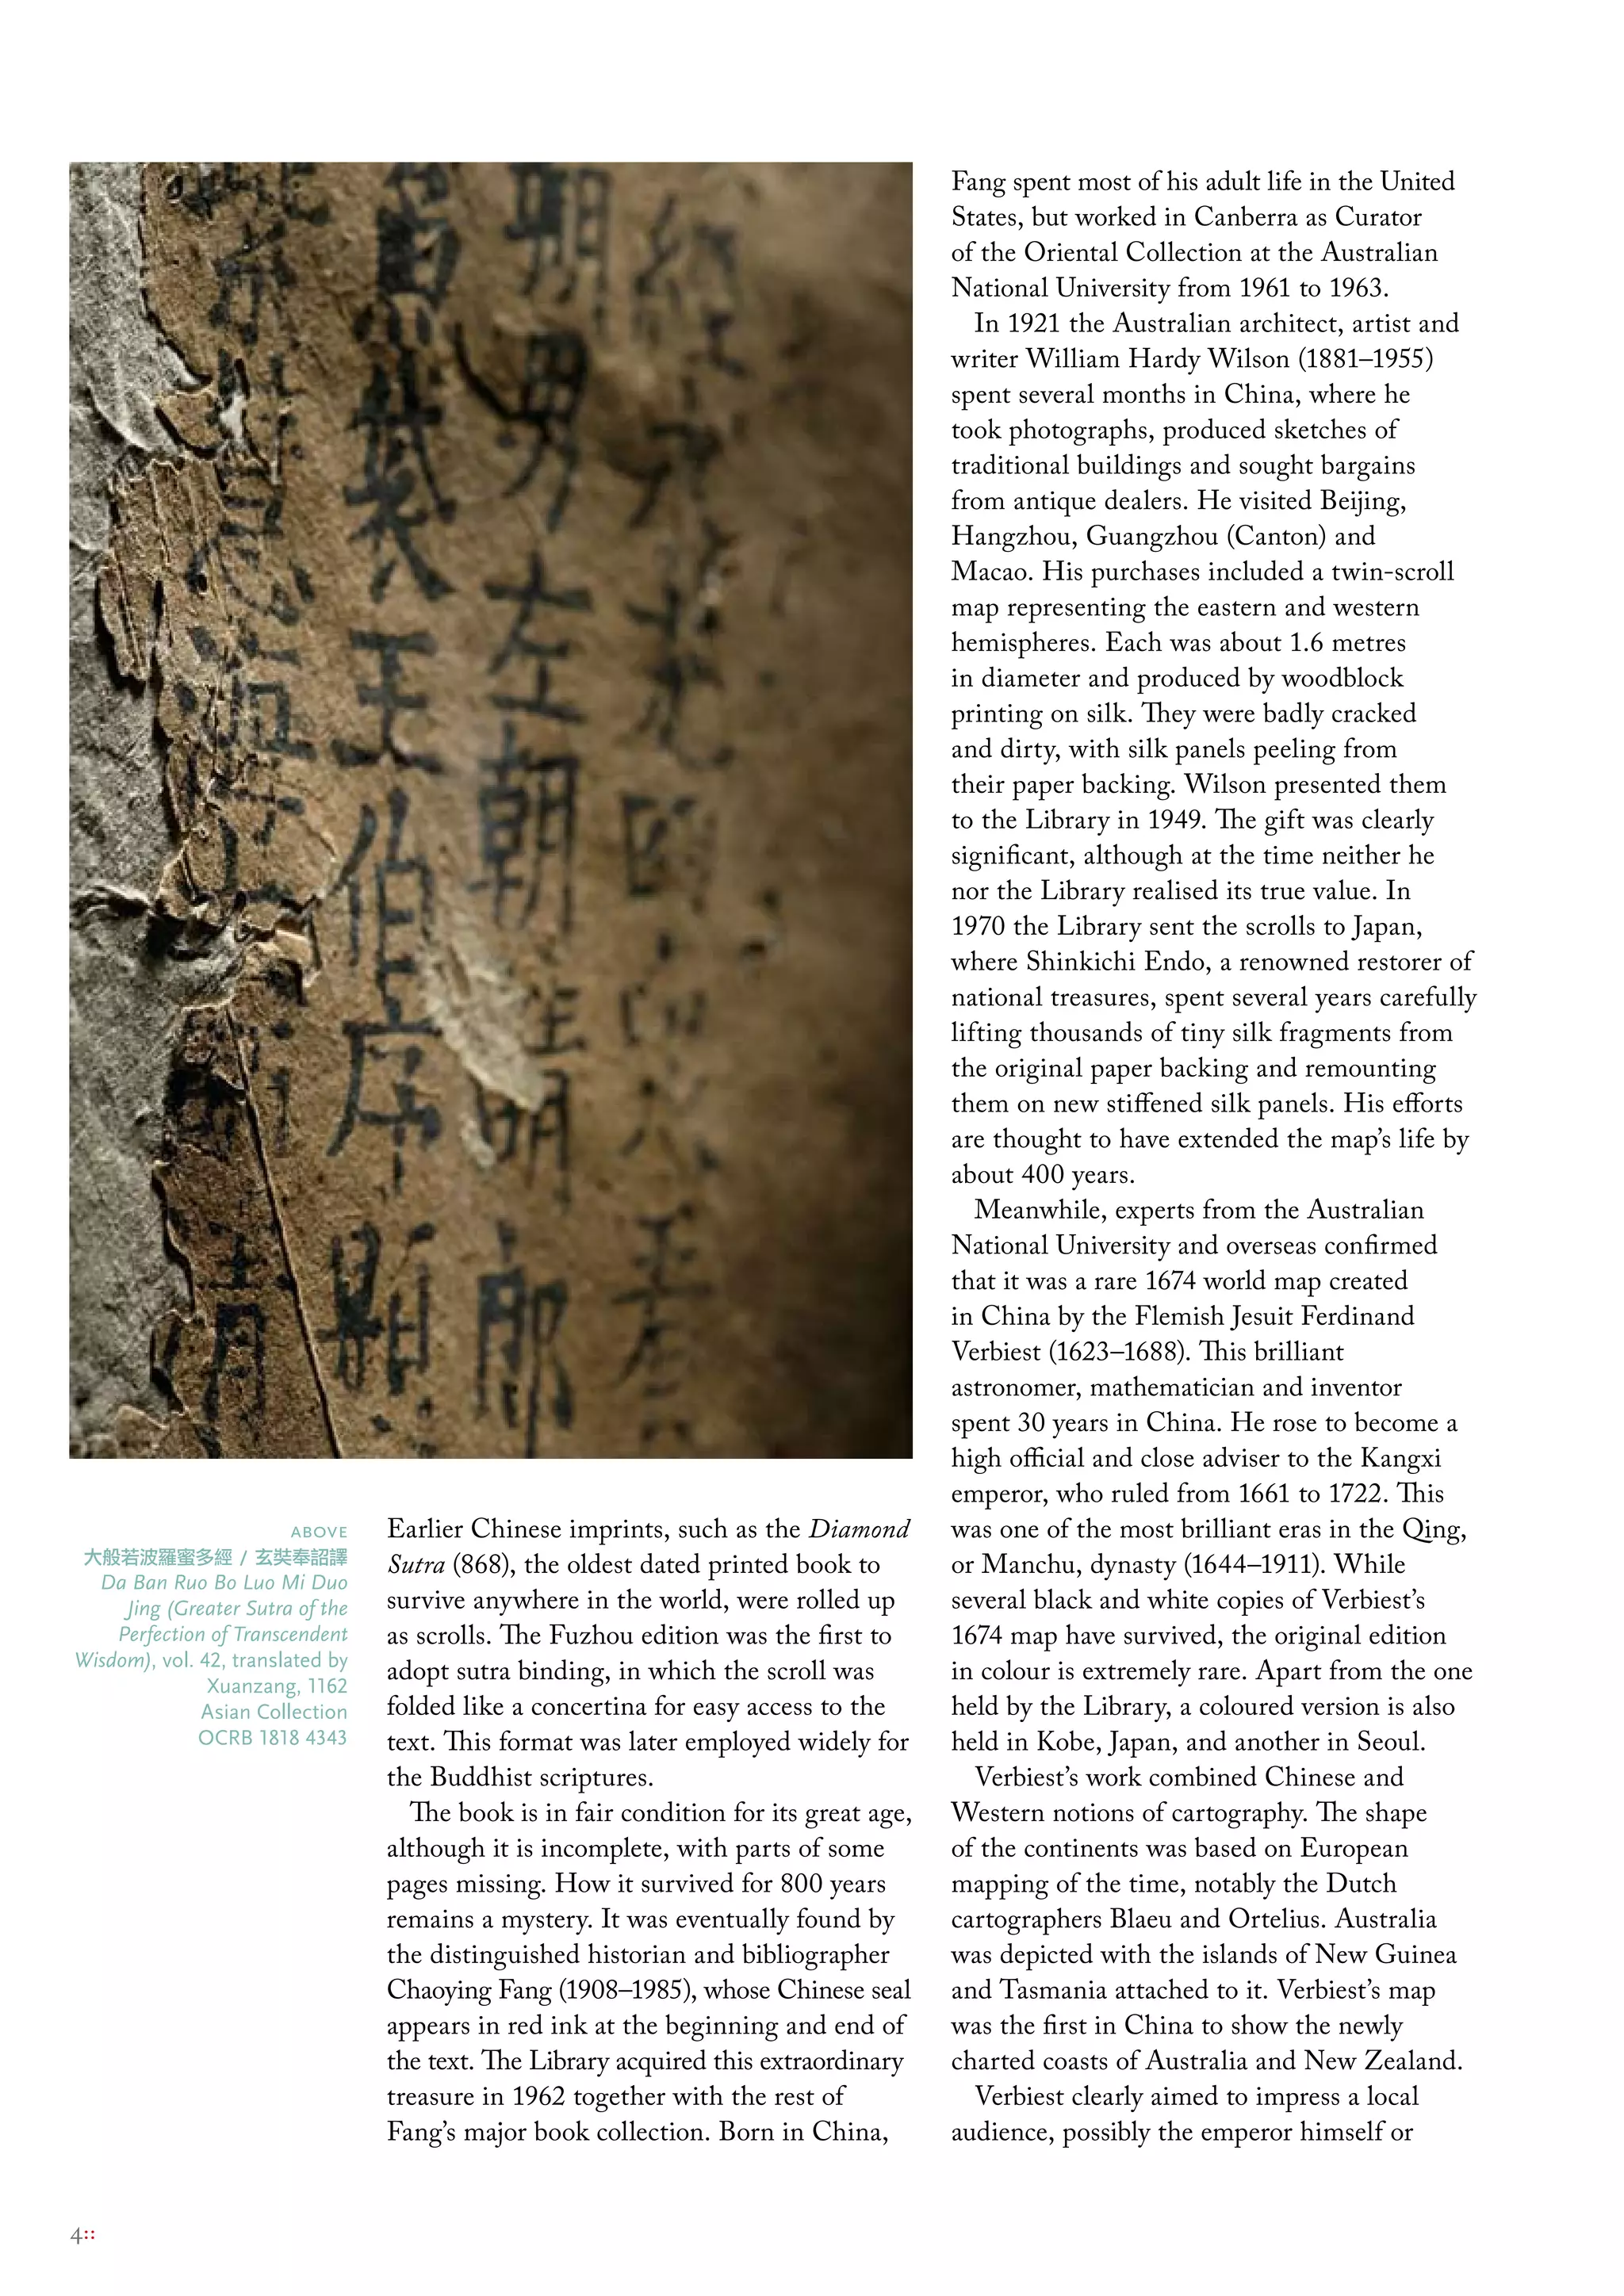 ABOVE
大般若波羅蜜多經 / 玄奘奉詔譯
Da Ban Ruo Bo Luo Mi Duo
Jing (Greater Sutra of the
Perfection of Transcendent
Wisdom), vol. 42, translated by
Xuanzang, 1162
Asian Collection
OCRB 1818 4343
Earlier Chinese imprints, such as the Diamond
Sutra (868), the oldest dated printed book to
survive anywhere in the world, were rolled up
as scrolls. The Fuzhou edition was the first to
adopt sutra binding, in which the scroll was
folded like a concertina for easy access to the
text. This format was later employed widely for
the Buddhist scriptures.
The book is in fair condition for its great age,
although it is incomplete, with parts of some
pages missing. How it survived for 800 years
remains a mystery. It was eventually found by
the distinguished historian and bibliographer
Chaoying Fang (1908–1985), whose Chinese seal
appears in red ink at the beginning and end of
the text. The Library acquired this extraordinary
treasure in 1962 together with the rest of
Fang’s major book collection. Born in China,
Fang spent most of his adult life in the United
States, but worked in Canberra as Curator
of the Oriental Collection at the Australian
National University from 1961 to 1963.
In 1921 the Australian architect, artist and
writer William Hardy Wilson (1881–1955)
spent several months in China, where he
took photographs, produced sketches of
traditional buildings and sought bargains
from antique dealers. He visited Beijing,
Hangzhou, Guangzhou (Canton) and
Macao. His purchases included a twin-scroll
map representing the eastern and western
hemispheres. Each was about 1.6 metres
in diameter and produced by woodblock
printing on silk. They were badly cracked
and dirty, with silk panels peeling from
their paper backing. Wilson presented them
to the Library in 1949. The gift was clearly
significant, although at the time neither he
nor the Library realised its true value. In
1970 the Library sent the scrolls to Japan,
where Shinkichi Endo, a renowned restorer of
national treasures, spent several years carefully
lifting thousands of tiny silk fragments from
the original paper backing and remounting
them on new stiffened silk panels. His efforts
are thought to have extended the map’s life by
about 400 years.
Meanwhile, experts from the Australian
National University and overseas confirmed
that it was a rare 1674 world map created
in China by the Flemish Jesuit Ferdinand
Verbiest (1623–1688). This brilliant
astronomer, mathematician and inventor
spent 30 years in China. He rose to become a
high official and close adviser to the Kangxi
emperor, who ruled from 1661 to 1722. This
was one of the most brilliant eras in the Qing,
or Manchu, dynasty (1644–1911). While
several black and white copies of Verbiest’s
1674 map have survived, the original edition
in colour is extremely rare. Apart from the one
held by the Library, a coloured version is also
held in Kobe, Japan, and another in Seoul.
Verbiest’s work combined Chinese and
Western notions of cartography. The shape
of the continents was based on European
mapping of the time, notably the Dutch
cartographers Blaeu and Ortelius. Australia
was depicted with the islands of New Guinea
and Tasmania attached to it. Verbiest’s map
was the first in China to show the newly
charted coasts of Australia and New Zealand.
Verbiest clearly aimed to impress a local
audience, possibly the emperor himself or
4::